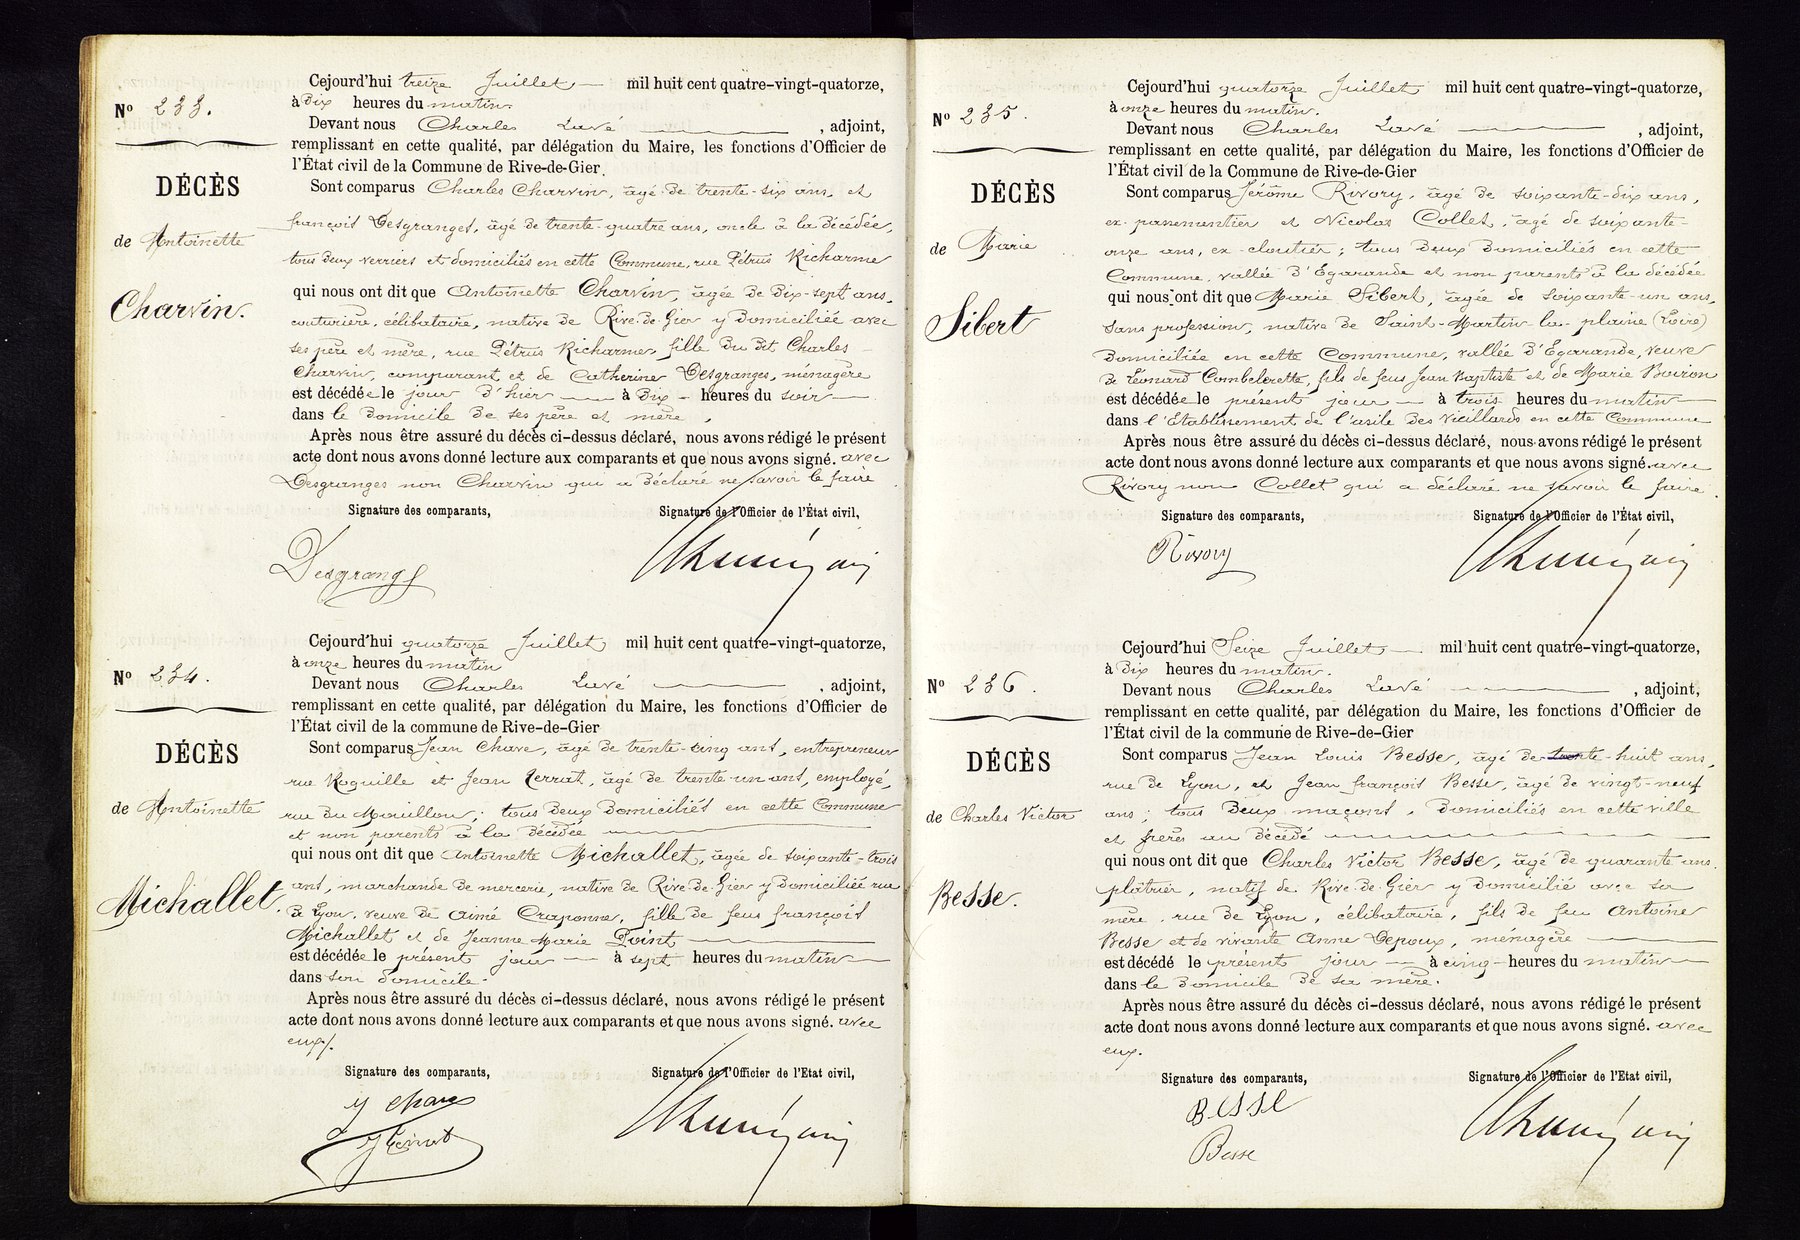 N° 233.
DÉCÈS
de Antoinette
Charvin.
Cejourd'hui treize Juillet — mil huit cent quatre-vingt-quatorze,
à Dix heures du matin
Devant nous Charles Lavé , adjoint,
remplissant en cette qualité, par délégation du Maire, les fonctions d'Officier de
l'État civil de la Commune de Rive-de-Gier.
Sont comparus Charles Charvin, âgé de trente-six ans, et
françois Desgranges, âgé de trente-quatre ans, oncle à la décédée,
tous deux verriers et domiciliés en cette Commune, rue Pétrus Richarme
qui nous ont dit que Antoinette Charvin, âgée de Dix-sept ans,
couturière, célibataire, native de Rive-de-Gier y domiciliée avec
ses père et mère, rue Pétrus Richarme, fille du dit Charles
Charvin, comparant et de Catherine Desgranges, ménagère
est décédée le jour d'hier — à Dix — heures du soir —
dans le domicile de ses père et mère,
Après nous être assuré du décès ci-dessus déclaré, nous avons rédigé le présent
acte dont nous avons donné lecture aux comparants et que nous avons signé. avec
Desgranges non Charvin qui a déclaré ne savoir le faire
Signature des comparants, Signature de l'Officier de l'État civil,
Desgranges
N° 234.
DÉCÈS
de Antoinette
Michallet.
Cejourd'hui quatorze Juillet mil huit cent quatre-vingt-quatorze,
à onze heures du matin
Devant nous Charles Lavé , adjoint,
remplissant en cette qualité, par délégation du Maire, les fonctions d'Officier de
l'État civil de la commune de Rive-de-Gier
Sont comparus Jean Chave, âgé de trente-cinq ans, entrepreneur
rue Roquille et Jean âgé de trente-un ans, employé,
rue du Mouillon; tous deux domiciliés en cette Commune
et non parents à la décédée
qui nous ont dit que Antoinette Michallet, âgée de soixante-trois
ans, marchande de mercerie, native de Rive-de-Gier y domiciliée rue
de Lyon, veuve de Aimé Craponne, fille de feus françois
Michallet et de Jeanne Marie Point —
est décédée le présent jour — à sept heures du matin —
dans son domicile.
Après nous être assuré du décès ci-dessus déclaré, nous avons rédigé le présent
acte dont nous avons donné lecture aux comparants et que nous avons signé. avec
eux/.
Signature des comparants, Signature de l'Officier de l'Etat civil,
N° 235.
DÉCÈS
de Marie
Sibert
Cejourd'hui quatorze Juillet mil huit cent quatre-vingt-quatorze,
à onze heures du matin.
Devant nous Charles Lavé , adjoint,
remplissant en cette qualité, par délégation du Maire, les fonctions d'Officier de
l'État civil de la Commune de Rive-de-Gier
Sont comparus Jérôme Rivory, âgé de soixante-dix ans,
ex-passementier et Nicolas Collet, âgé de soixante-
onze ans, ex-cloutier; tous deux domiciliés en cette
Commune, vallée d'Egarande et non parents à la décédée
qui nous ont dit que Marie Sibert, âgée de soixante-un ans,
sans profession, native de Saint-Martin-la-plaine (Loire)
domiciliée en cette Commune, vallée d'Egarande, veuve
de Léonard Combelerette, fils de feus Jean Baptiste et de Marie Boiron
est décédée le présent jour — à trois heures du matin —
dans l'Etablissement de l'asile des Vieillards en cette Commune
Après nous être assuré du décès ci-dessus déclaré, nous avons rédigé le présent
acte dont nous avons donné lecture aux comparants et que nous avons signé. avec
Rivory non Collet qui a déclaré ne savoir le faire.
Signature des comparants, Signature de l'Officier de l'État civil,
Rivory
N° 236.
DÉCÈS
de Charles Victor
Besse.
Cejourd'hui Seize Juillet — mil huit cent quatre-vingt-quatorze,
à Dix heures du matin.
Devant nous Charles Lavé , adjoint,
remplissant en cette qualité, par délégation du Maire, les fonctions d'Officier de
l'État civil de la commune de Rive-de-Gier
Sont comparus Jean Louis Besse, âgé de trente-huit ans,
rue de Lyon, et Jean françois Besse, âgé de vingt-neuf
ans; tous deux maçons, domiciliés en cette ville
et frères au décédé
qui nous ont dit que Charles Victor Besse, âgé de quarante ans
plâtrier, natif de Rive-de-Gier y domicilié avec sa
mère, rue de Lyon, célibataire, fils de feu Antoine
Besse et de vivante Anne Depoux, ménagère —
est décédé le présent jour — à cinq — heures du matin —
dans le domicile de sa mère.
Après nous être assuré du décès ci-dessus déclaré, nous avons rédigé le présent
acte dont nous avons donné lecture aux comparants et que nous avons signé. avec
eux.
Signature des comparants, Signature de l'Officier de l'Etat civil,
BESSE
Besse